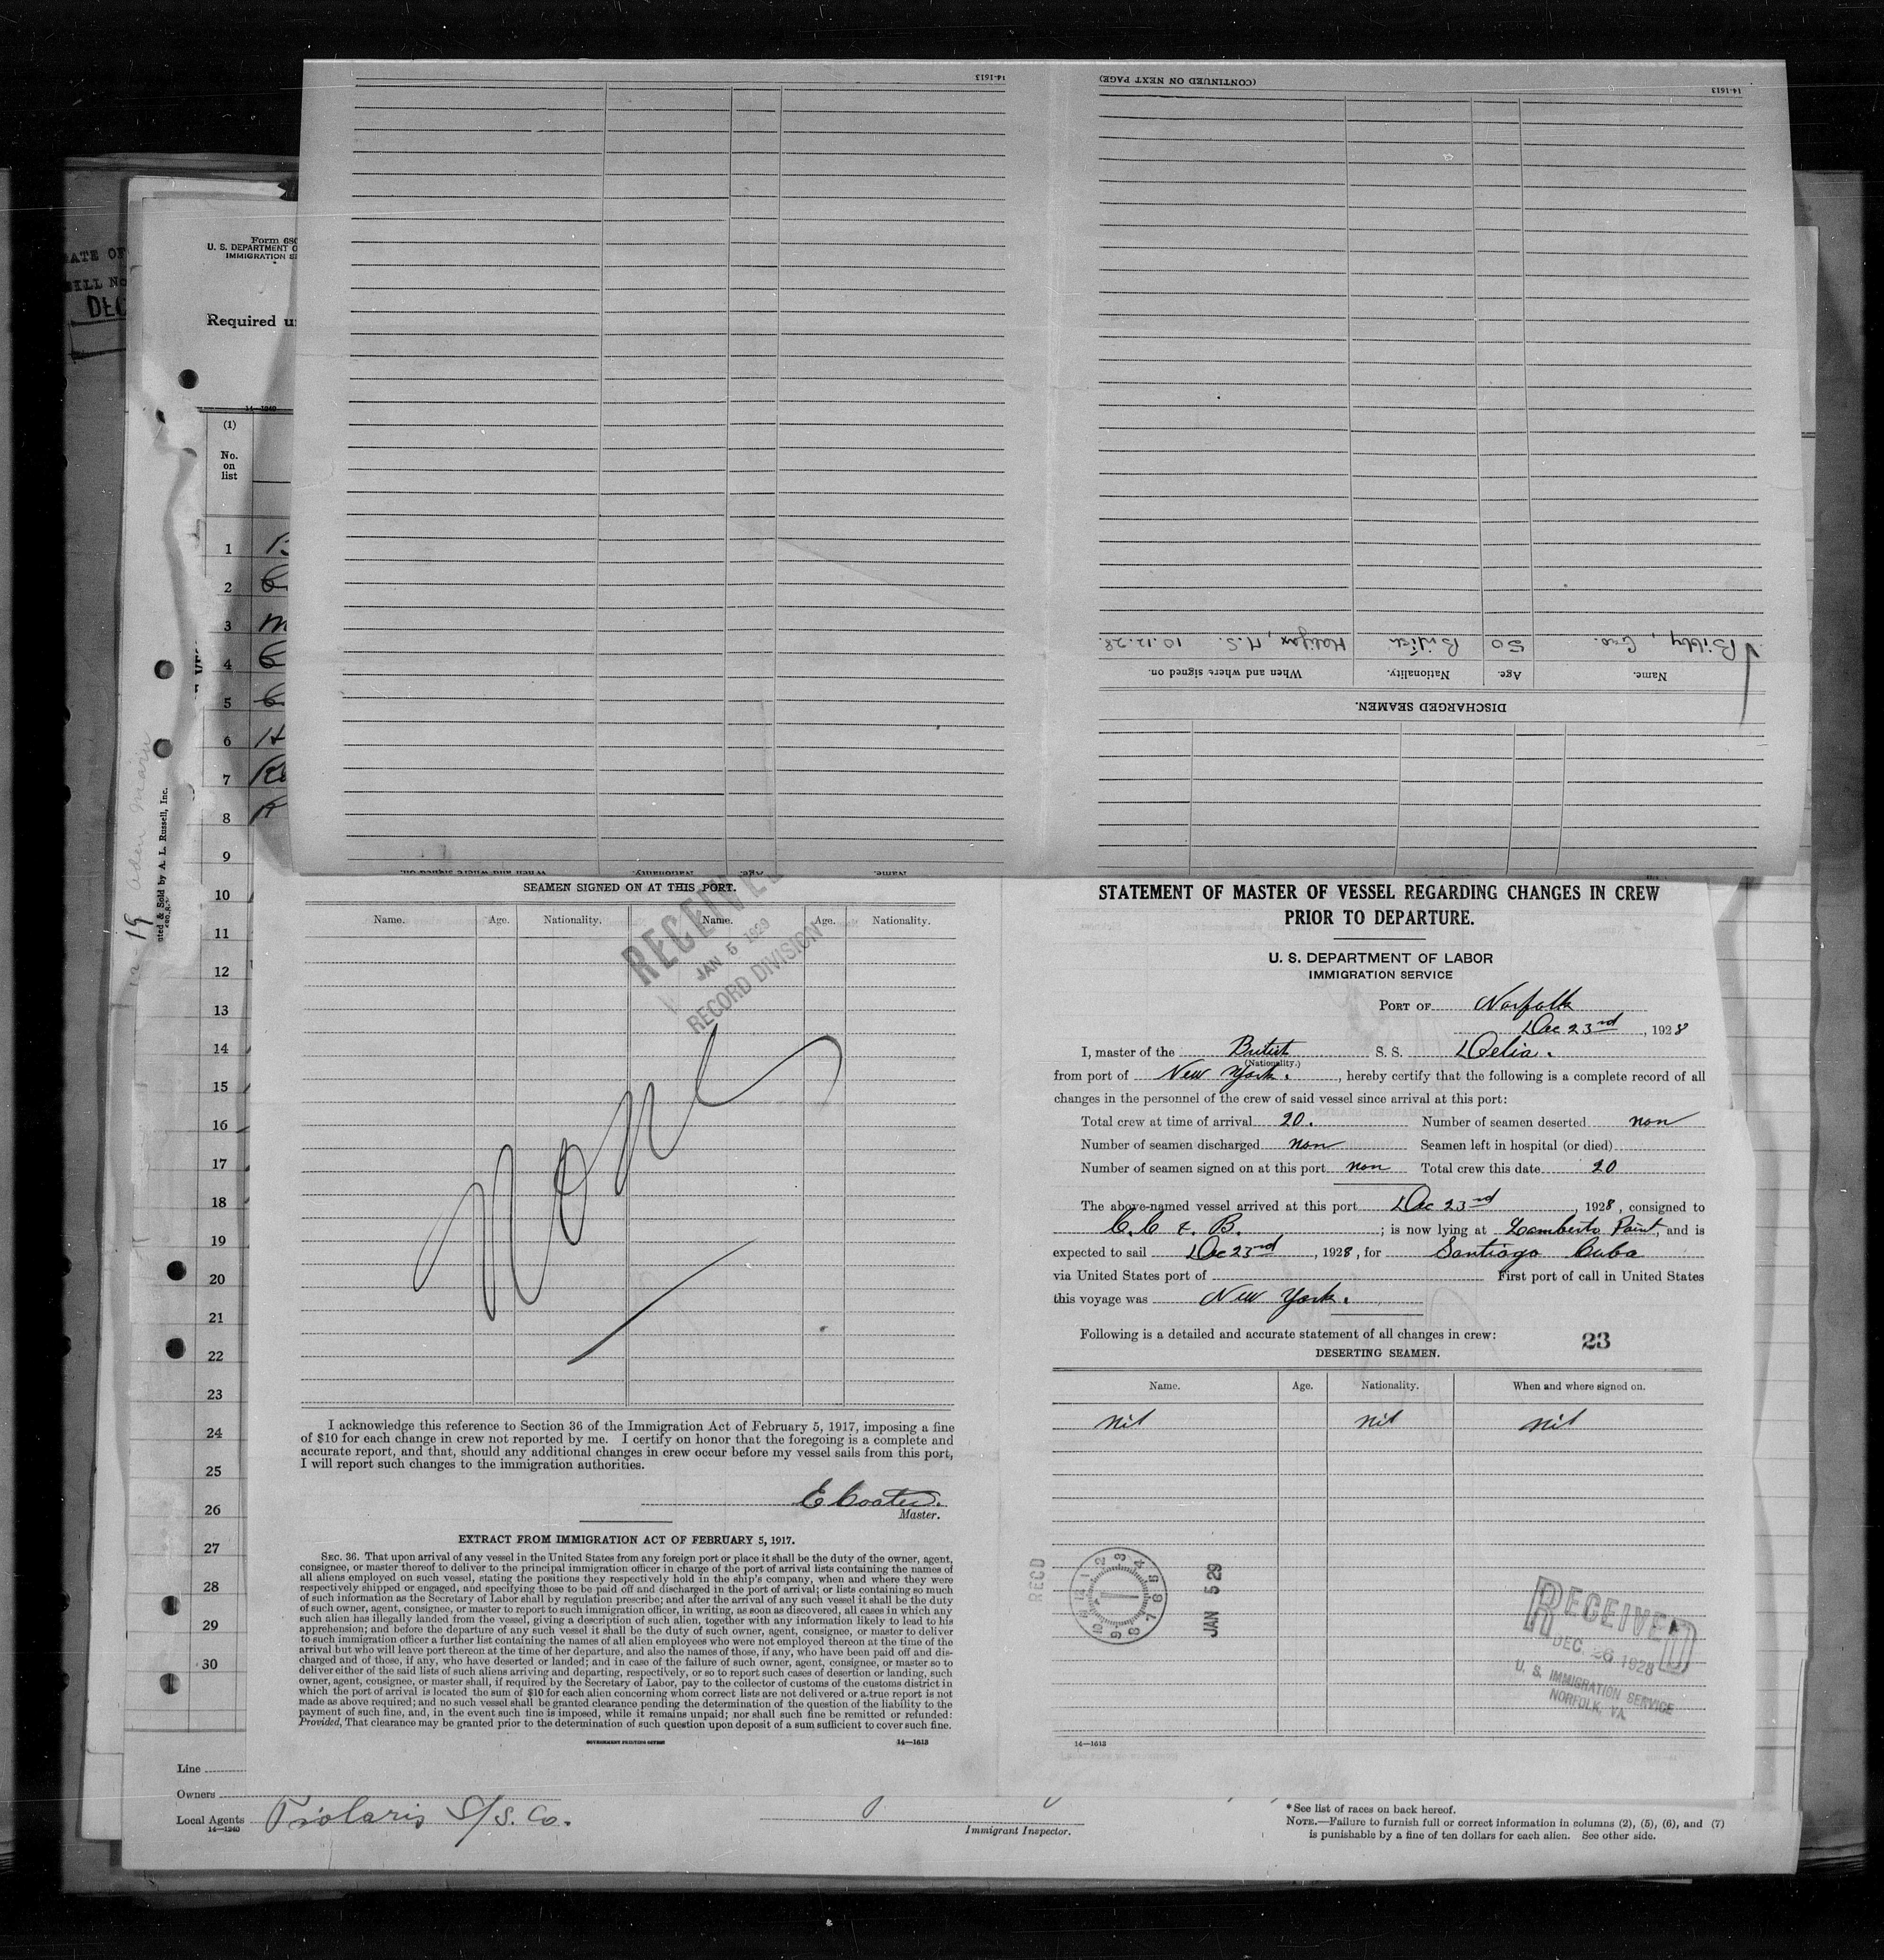 14-1613
(CONTINUED ON NEXT PAGE)
14-1613
Bibby, Geo. 50 British Halifax, N.S. 10.12.28.
Name. Age. Nationality. When and where signed on.
DISCHARGED SEAMEN.
Name. Age. Nationality. When and where signed on.
ATE OF
BILL No
DEC
Form 680
U. S. DEPARTMENT O
IMMIGRATION SE
Required u
14—1240
(1)
No.
on
list
1
2
3
4
5
6
7
8
9
10
11
12
13
14
15
16
17
18
19
20
21
22
23
24
25
26
27
28
29
30
uted & Sold by A. L. Russell, Inc.
SEAMEN SIGNED ON AT THIS PORT.
Name. Age. Nationality. Name. Age. Nationality.
RECEIVED
JAN 5 1929
RECORD DIVISION
None
I acknowledge this reference to Section 36 of the Immigration Act of February 5, 1917, imposing a fine
of $10 for each change in crew not reported by me. I certify on honor that the foregoing is a complete and
accurate report, and that, should any additional changes in crew occur before my vessel sails from this port,
I will report such changes to the immigration authorities.
E Coates.
Master.
EXTRACT FROM IMMIGRATION ACT OF FEBRUARY 5, 1917.
SEC. 36. That upon arrival of any vessel in the United States from any foreign port or place it shall be the duty of the owner, agent,
consignee, or master thereof to deliver to the principal immigration officer in charge of the port of arrival lists containing the names of
all aliens employed on such vessel, stating the positions they respectively hold in the ship's company, when and where they were
respectively shipped or engaged, and specifying those to be paid off and discharged in the port of arrival; or lists containing so much
of such information as the Secretary of Labor shall by regulation prescribe; and after the arrival of any such vessel it shall be the duty
of such owner, agent, consignee, or master to report to such immigration officer, in writing, as soon as discovered, all cases in which any
such alien has illegally landed from the vessel, giving a description of such alien, together with any information likely to lead to his
apprehension; and before the departure of any such vessel it shall be the duty of such owner, agent, consignee, or master to deliver
to such immigration officer a further list containing the names of all alien employees who were not employed thereon at the time of the
arrival but who will leave port thereon at the time of her departure, and also the names of those, if any, who have been paid off and dis-
charged and of those, if any, who have deserted or landed; and in case of the failure of such owner, agent, consignee, or master so to
deliver either of the said lists of such aliens arriving and departing, respectively, or so to report such cases of desertion or landing, such
owner, agent, consignee, or master shall, if required by the Secretary of Labor, pay to the collector of customs of the customs district in
which the port of arrival is located the sum of $10 for each alien concerning whom correct lists are not delivered or a true report is not
made as above required; and no such vessel shall be granted clearance pending the determination of the question of the liability to the
payment of such fine, and, in the event such fine is imposed, while it remains unpaid; nor shall such fine be remitted or refunded:
Provided, That clearance may be granted prior to the determination of such question upon deposit of a sum sufficient to cover such fine.
GOVERNMENT PRINTING OFFICE 14—1613
STATEMENT OF MASTER OF VESSEL REGARDING CHANGES IN CREW
PRIOR TO DEPARTURE.
U. S. DEPARTMENT OF LABOR
IMMIGRATION SERVICE
PORT OF Norfolk
Dec 23rd, 1928
I, master of the British S. S. Delia.
(Nationality.)
from port of New York., hereby certify that the following is a complete record of all
changes in the personnel of the crew of said vessel since arrival at this port:
Total crew at time of arrival 20. Number of seamen deserted non
Number of seamen discharged non Seamen left in hospital (or died)
Number of seamen signed on at this port non Total crew this date 20
The above-named vessel arrived at this port Dec 23rd, 1928, consigned to
C. C & B.; is now lying at Lamberts Point, and is
expected to sail Dec 23rd, 1928, for Santiago Cuba
via United States port of First port of call in United States
this voyage was New York.
Following is a detailed and accurate statement of all changes in crew:
23
DESERTING SEAMEN.
Name. Age. Nationality. When and where signed on.
Nil Nil Nil
RECD
JAN 5 29
RECEIVED
DEC. 26 1928
U. S. IMMIGRATION SERVICE
NORFOLK, VA.
14—1613
Line
Owners
Local Agents Polaris S/S. Co.
14—1240
Immigrant Inspector.
* See list of races on back hereof.
NOTE.—Failure to furnish full or correct information in columns (2), (5), (6), and (7)
is punishable by a fine of ten dollars for each alien. See other side.